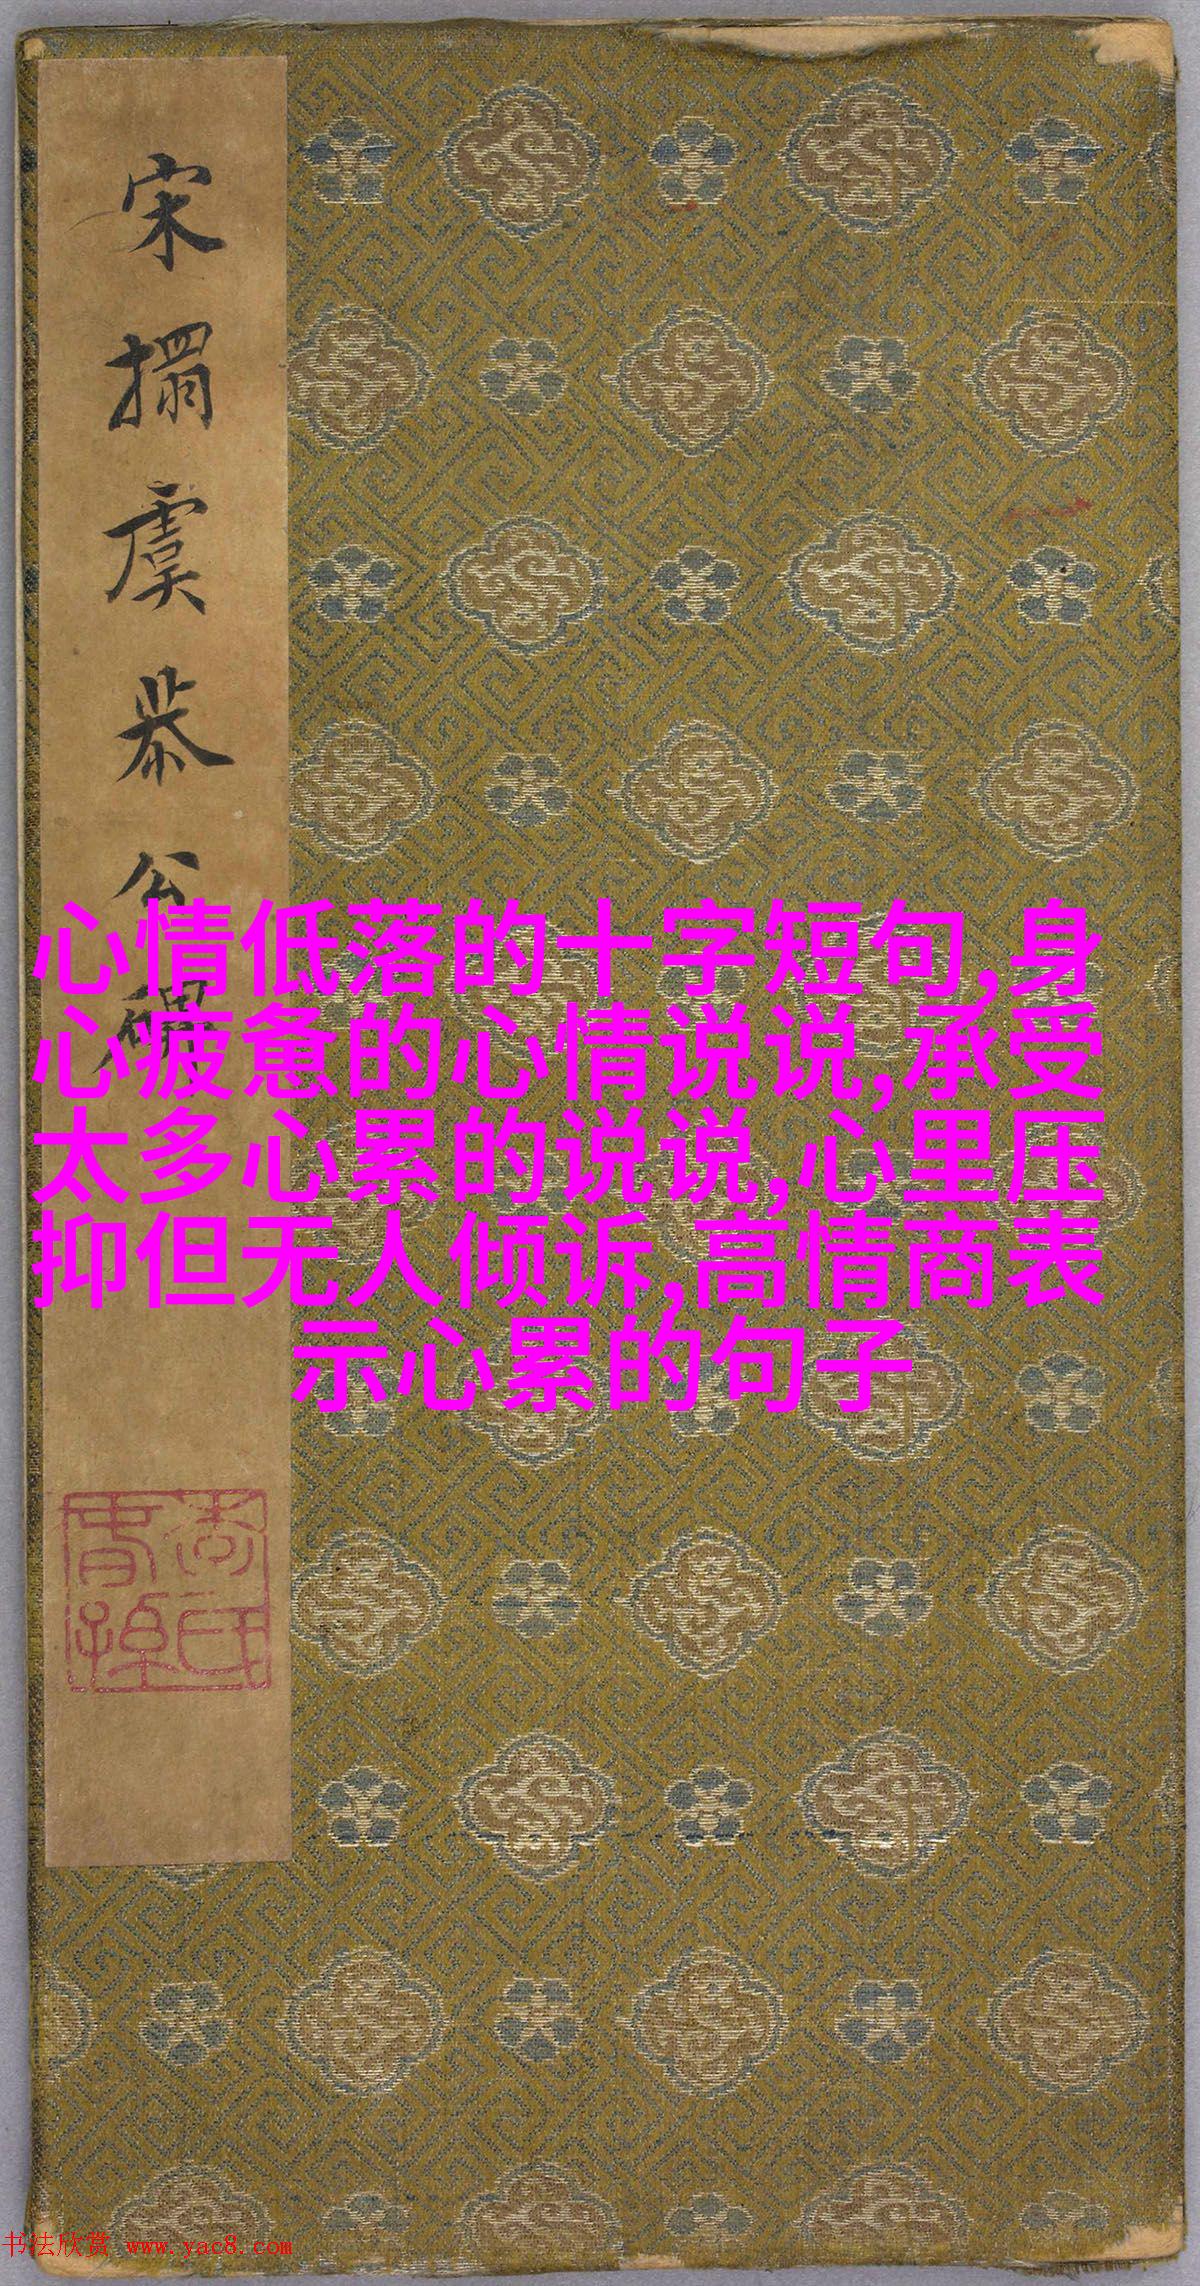 宋搨虞恭公碑
心情低落的十字短句,身
心疲惫的心情说说,承受
太多心累的说说,心里压
抑但无人倾诉,高情商表
示心累的句子
书法欣赏 www.yac8.com